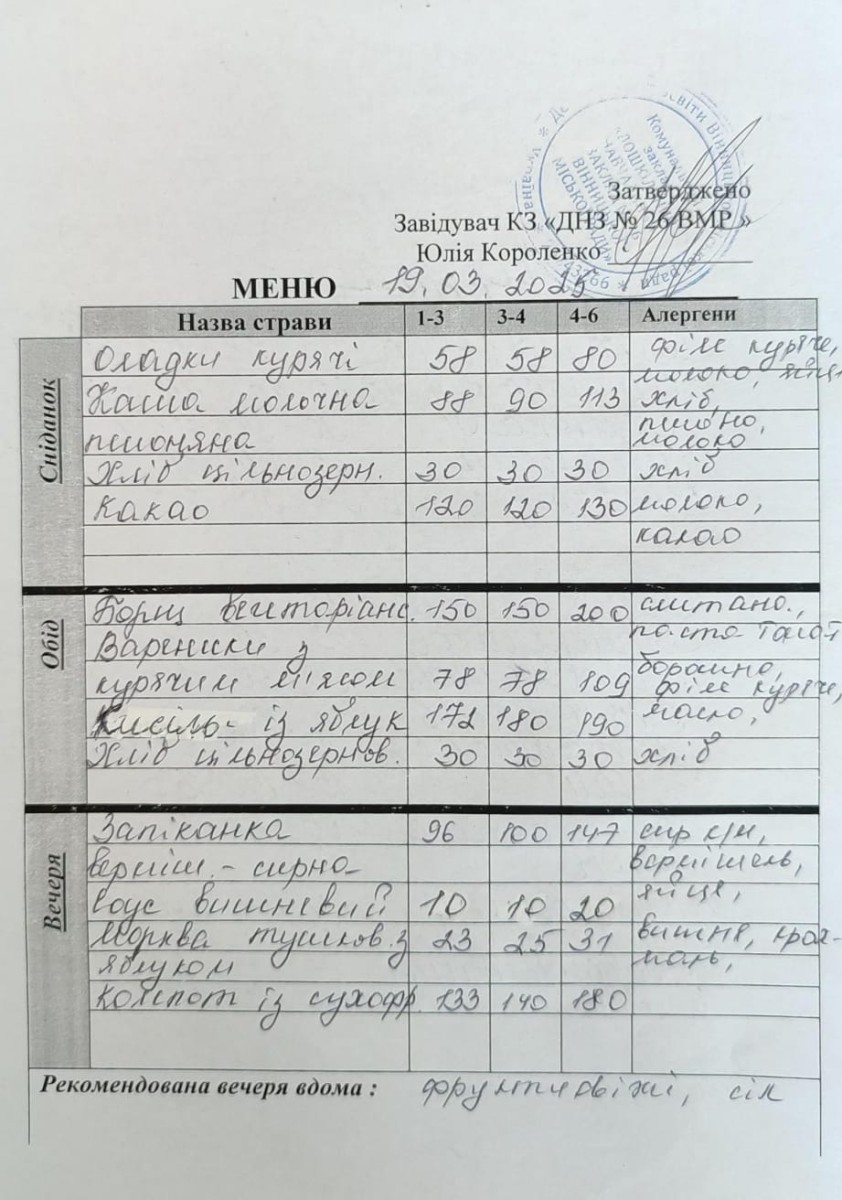 Затверджено
Завідувач КЗ «ДНЗ № 26 ВМР »
Юлія Короленко
МЕНЮ 19.03.2025
Назва страви 1-3 3-4 4-6 Алергени
Сніданок
Оладки курячі 58 58 80 філе куряче,
молоко, яйця
Каша молочна 88 90 113 хліб,
пшоняна пшоно,
молоко
Хліб цільнозерн. 30 30 30 хліб
Какао 120 120 130 молоко,
какао
Обід
Борщ вегетаріанс. 150 150 200 сметана.,
паста томат
Вареники з
курячим м'ясом 78 78 109 борошно,
філе куряче,
Кисіль- із яблук 172 180 190 масло,
Хліб цільнозернов. 30 30 30 хліб
Вечеря
Запіканка 96 100 147 сир к/м,
верміш.- сирна вермішель,
соус вишневий 10 10 20 яйця,
Морква тушков. з 23 25 31 вишня, крох-
яблуком маль,
Компот із сухофр. 133 140 180
Рекомендована вечеря вдома : фрукти свіжі, сік